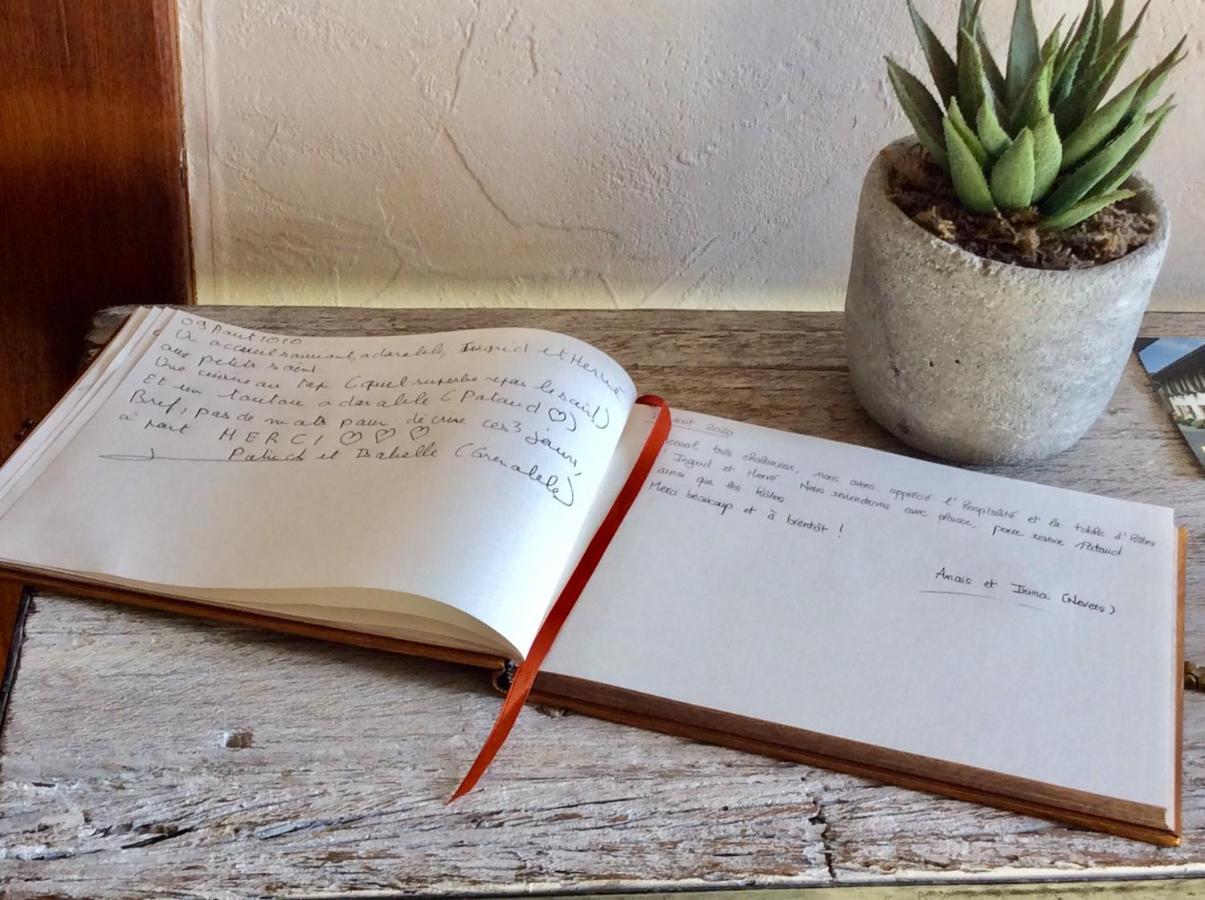 09 Aout 2020
Un accueil souriant, adorable, Ingrid et Hervé
aux petits soins
Une cuisine au top (quel superbe repas le soir!)
Et un toutou adorable (Pataud ♡)
Bref, pas de mots pour décrire ces 3 jours,
à part MERCI ♡ ♡ ♡
Patrick et Isabelle (Grenoble)
août 2020
Accueil très chaleureux, nous avons apprécié l'hospitalité et la table d'hôtes
d'Ingrid et Hervé. Nous reviendrons avec plaisir, pour revoir Pataud
ainsi que les hôtes
Merci beaucoup et à bientôt !
Anais et Iruma (Nevers)